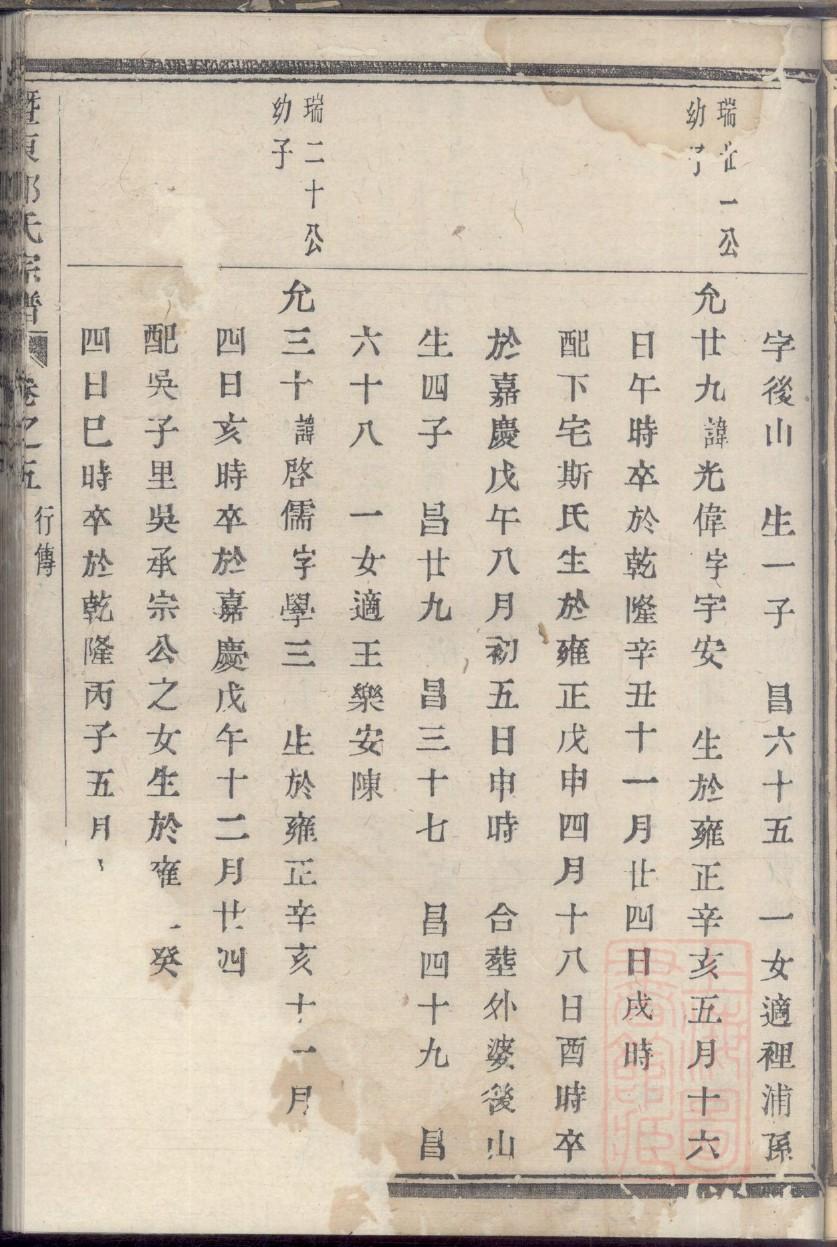 字後山 生一子 昌六十五 一女適裡浦孫
瑞廿一公
幼子
允廿九諱光偉字宇安 生於雍正辛亥五月十六
日午時卒於乾隆辛丑十一月廿四日戌時
配下宅斯氏生於雍正戊申四月十八日酉時卒
於嘉慶戊午八月初五日申時 合塟外婆後山
生四子 昌廿九 昌三十七 昌四十九 昌
六十八 一女適王樂安陳
瑞二十公
幼子
允三十諱啓儒字學三 生於雍正辛亥十一月
四日亥時卒於嘉慶戊午十二月廿四
配吳子里吳承宗公之女生於雍 癸
四日巳時卒於乾隆丙子五月
暨東 氏宗譜 卷之五 行傳